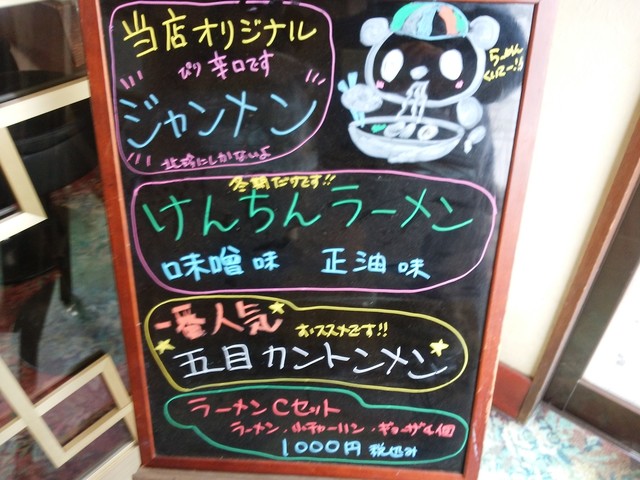 当店オリジナル
ぴり辛口です
ジャンメン
北珍にしかないよ
らーめん
くいてー!!
冬期だけです!!
けんちんラーメン
味噌味 正油味
一番人気
おススメです!!
五目カントンメン
ラーメンCセット
ラーメン・小チャーハン・ギョーザ4個
1000円 税込み